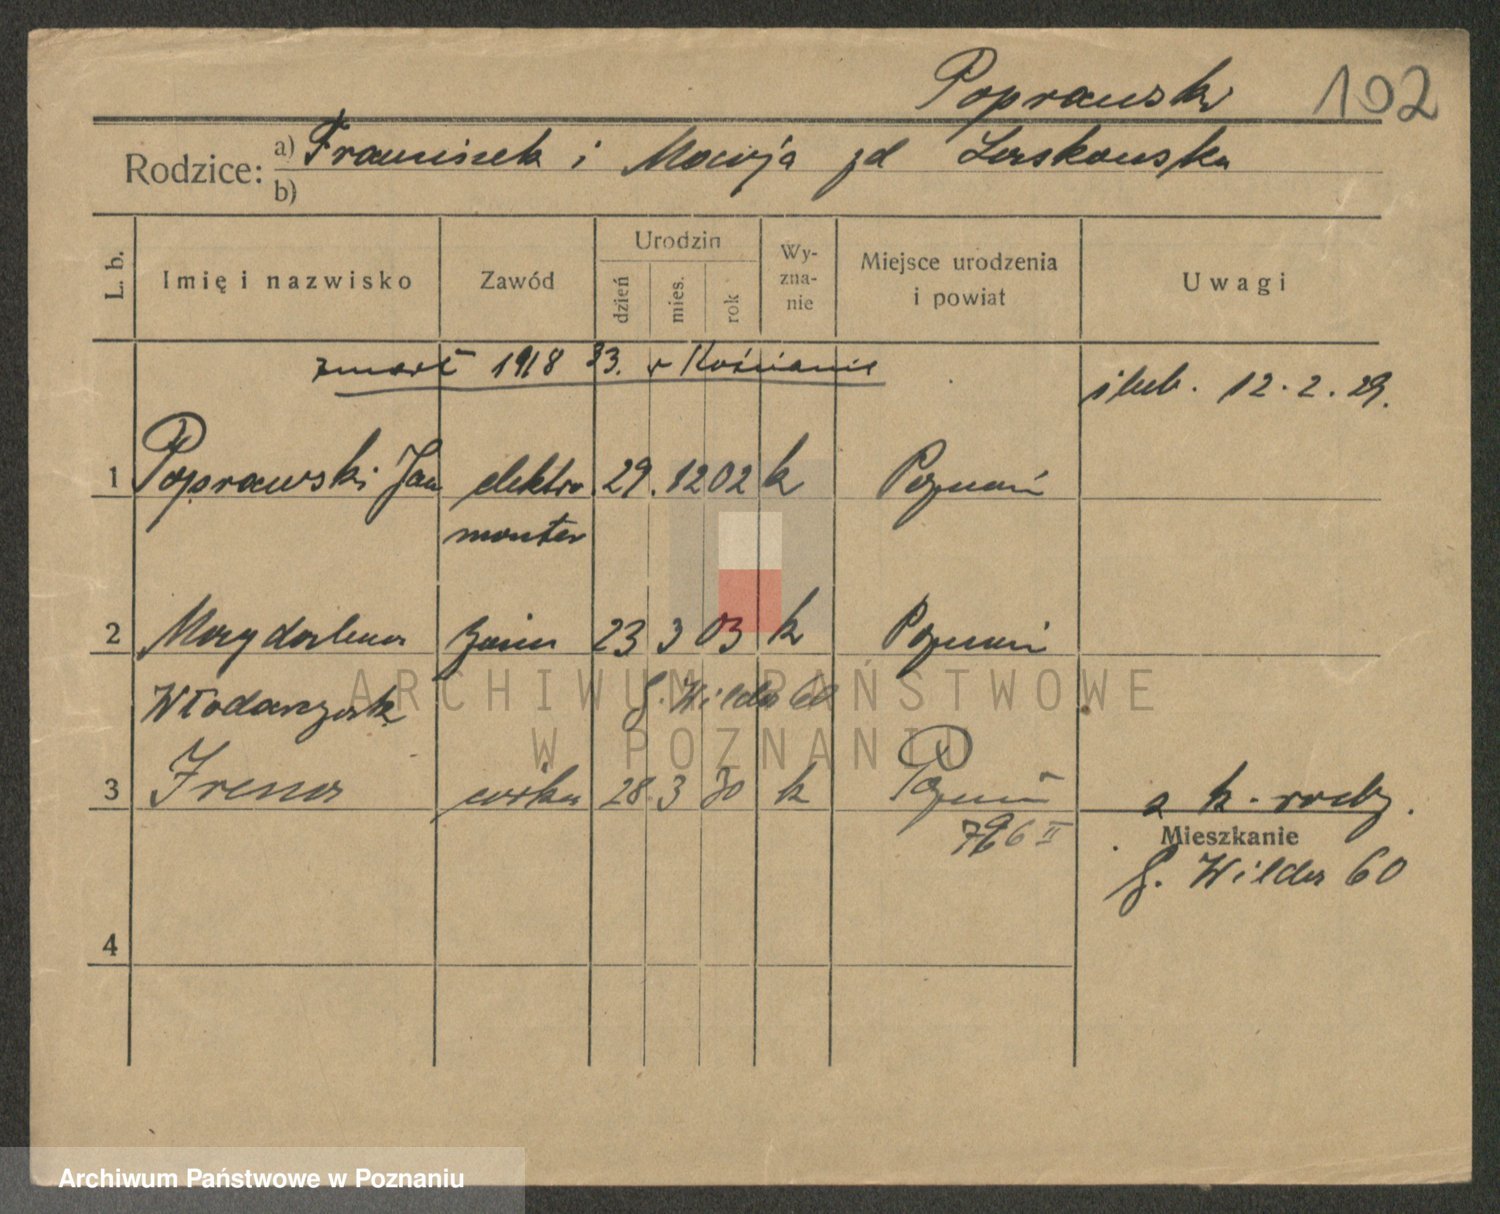 Poprawski 102
Rodzice: a) Franciszek i Marja zd
b)
L. b. Imię i nazwisko Zawód Urodzin dzień mies. rok Wy-zna-nie Miejsce urodzenia i powiat Uwagi
zmarł 1918 33. w Kościanie
ślub. 12.2.29.
1 Poprawski Jan elektro 29.12 02 k Poznań
monter
2 Magdalena żona 23 3 03 k Poznań
Włodarczak G. Wilda 60
ARCHIWUM PAŃSTWOWE
W POZNANIU
3 Irena córka 28 3 30 k Poznań
II
Mieszkanie
G. Wilda 60
4
Archiwum Państwowe w Poznaniu